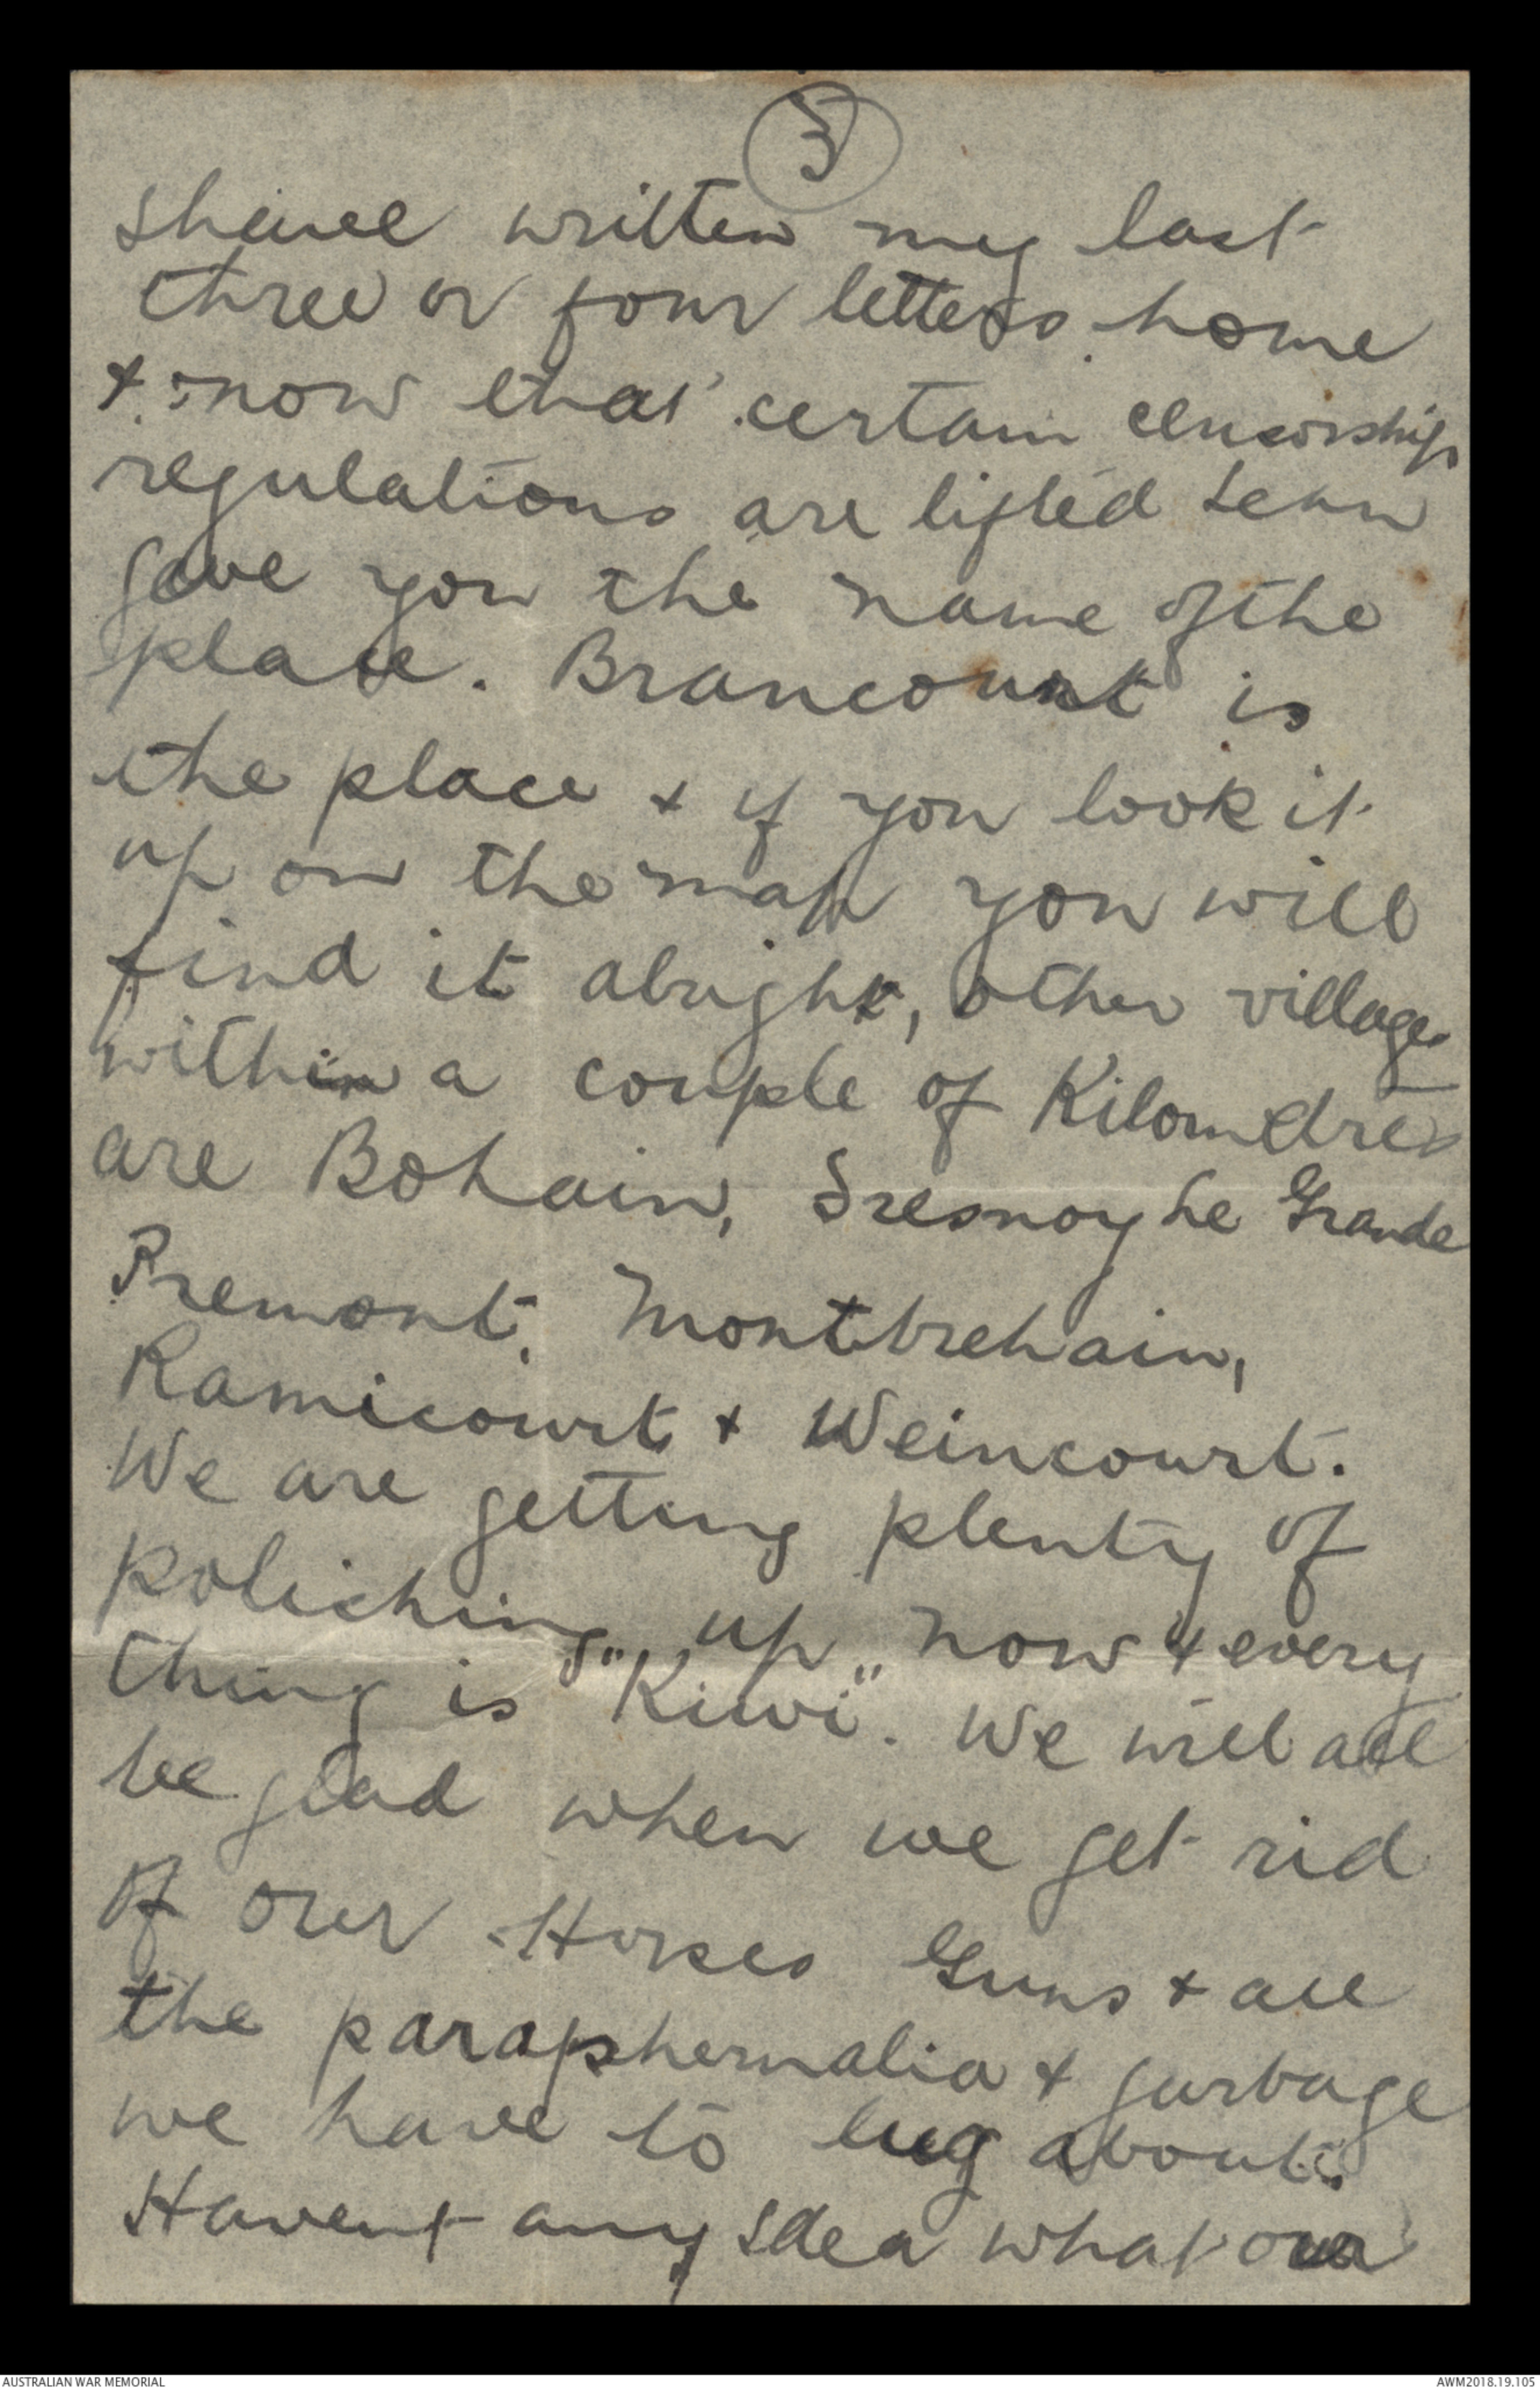 3
I have written my last
three or four letters home
& now that certain censorship
regulations are lifted I can
give you the name of the
place. Brancourt is
the place & if you look it
up on the map you will
find it alright, other villages
within a couple of Kilometres
are Bohain, Fresnoy Le Grande
Premont, Montbrehain,
Ramicourt & Weincourt.
We are getting plenty of
polishing "up" now & every
thing is "Kiwi". We will all
be glad when we get rid
of our Horses Guns & all
the paraphernalia & garbage
we have to lug about.
Havent any Idea what our
AUSTRALIAN WAR MEMORIAL
AWM2018.19.105